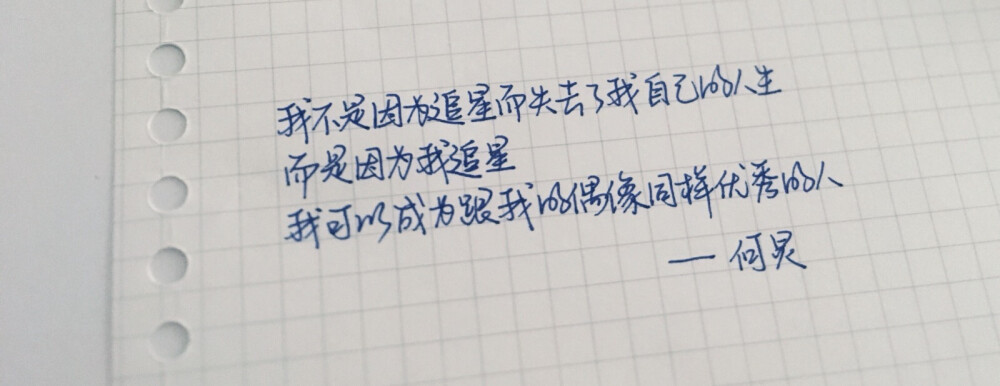 我不是因为追星而失去了我自己的人生
而是因为我追星
我可以成为跟我的偶像同样优秀的人
—何炅